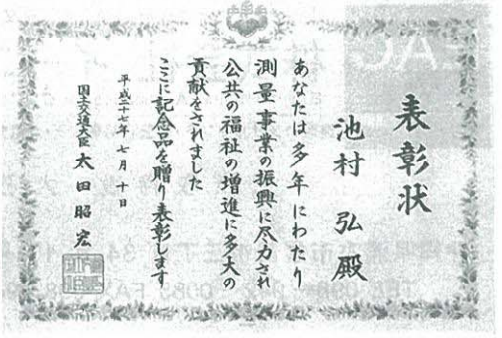 表彰状
池村 弘 殿
あなたは多年にわたり
測量事業の振興に尽力され
公共の福祉の増進に多大の
貢献をされました
ここに記念品を贈り表彰します
平成二十七年七月十日
国土交通大臣 太田昭宏